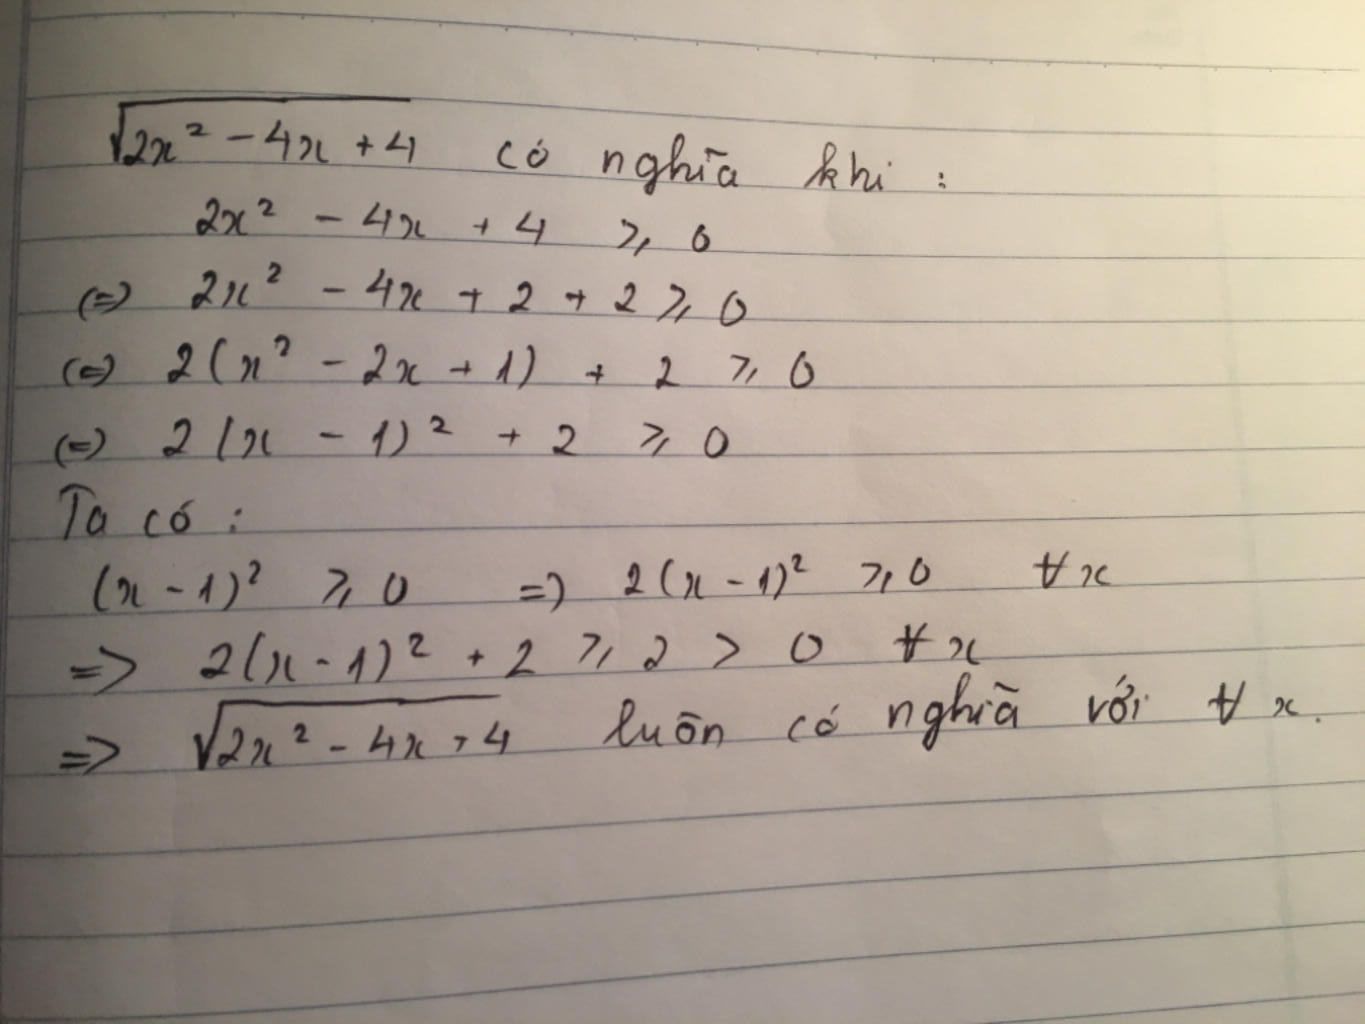 √(2x² - 4x + 4) có nghĩa khi :
2x² - 4x + 4 ≥ 0
(=) 2x² - 4x + 2 + 2 ≥ 0
(=) 2(x² - 2x + 1) + 2 ≥ 0
(=) 2(x - 1)² + 2 ≥ 0
Ta có :
(x - 1)² ≥ 0 => 2(x - 1)² ≥ 0 ∀x
=> 2(x - 1)² + 2 ≥ 2 > 0 ∀x
=> √(2x² - 4x + 4) luôn có nghĩa với ∀x.